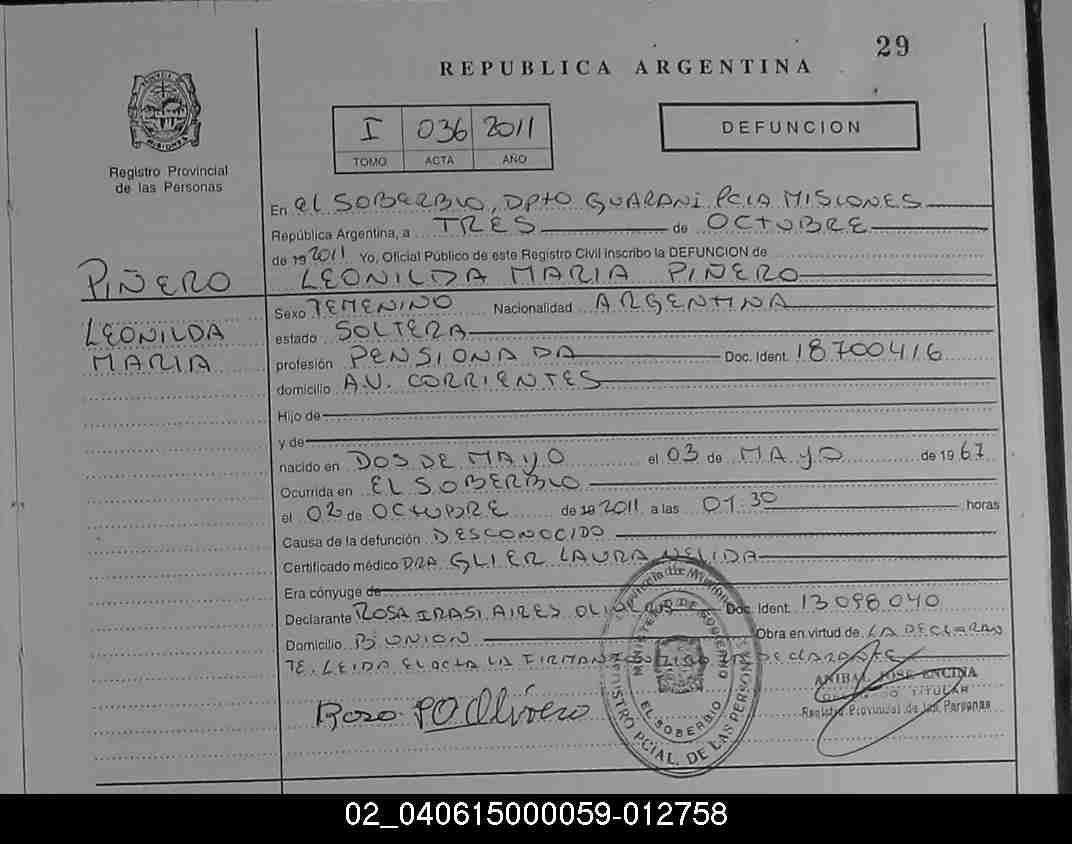 29
REPUBLICA ARGENTINA
I 036 2011
TOMO ACTA AÑO
DEFUNCION
Registro Provincial
de las Personas
PIÑERO
LEONILDA
MARIA
En EL SOBERBIO, DPTO GUARANI PCIA MISIONES
República Argentina, a TRES de OCTUBRE
de 19 2011 Yo, Oficial Público de este Registro Civil inscribo la DEFUNCION de
LEONILDA MARIA PIÑERO
Sexo FEMENINO Nacionalidad ARGENTINA
estado SOLTERA
profesión PENSIONADA Doc. Ident. 18700416
domicilio AV. CORRIENTES
Hijo de
y de
nacido en DOS DE MAYO el 03 de MAYO de 19 67
Ocurrida en EL SOBERBIO
el 02 de OCTUBRE de 19 2011 a las 01.30 horas
Causa de la defunción DESCONOCIDO
Certificado médico DRA GLIER LAURA NELIDA
Era cónyuge de
Declarante ROSA IRASI AIRES Doc. Ident. 13098040
Domicilio Bº UNION Obra en virtud de LA DECLARAN
TE. LEIDA EL ACTA LA FIRMAN CONMIGO LA DECLARANTE
ANIBAL JOSE ENCINA
OFICIAL PUBLICO TITULAR
Registro Provincial de las Personas
Provincia de Misiones
MINISTERIO DE GOBIERNO
EL SOBERBIO
REGISTRO PCIAL. DE LAS PERSONAS
02_040615000059-012758